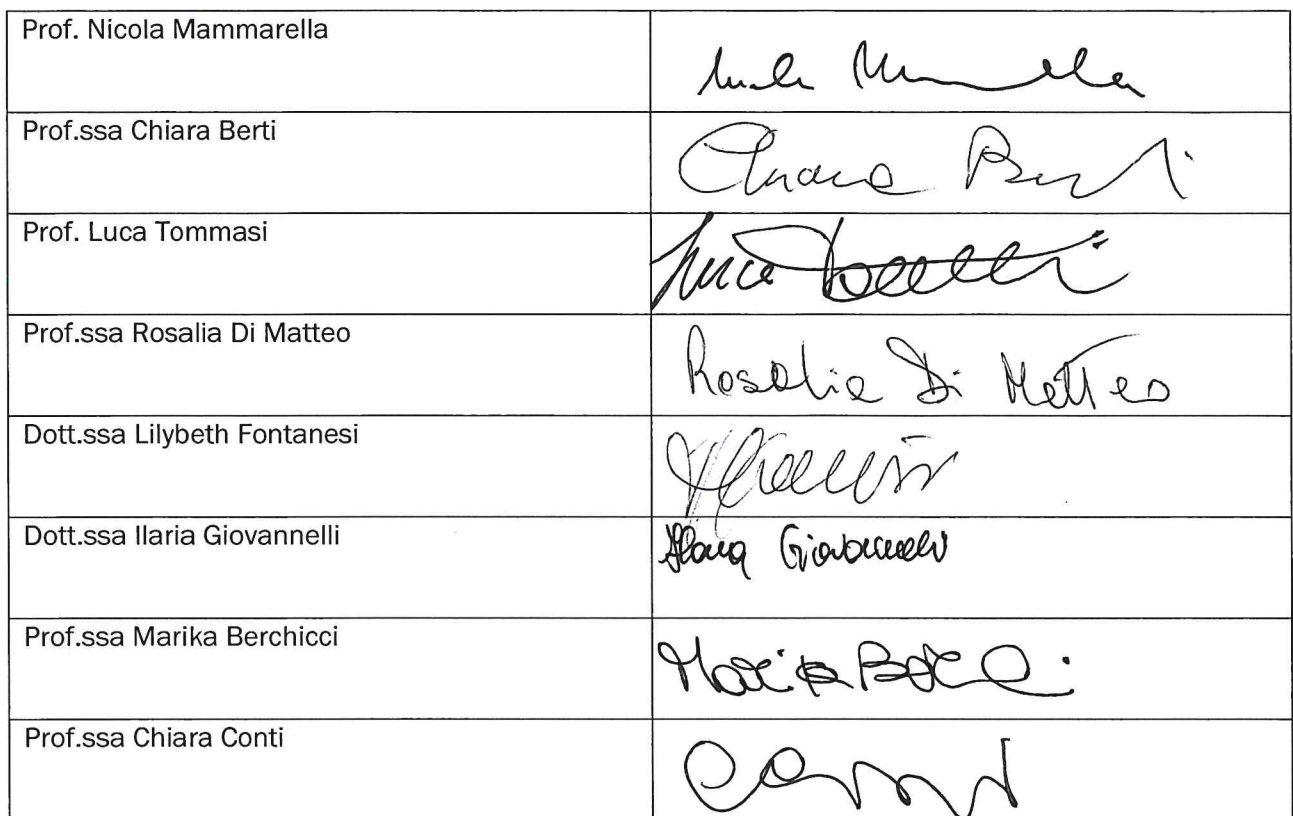 Prof. Nicola Mammarella
Prof.ssa Chiara Berti
Chiara Berti
Prof. Luca Tommasi
Luca Tommasi
Prof.ssa Rosalia Di Matteo
Rosalia Di Matteo
Dott.ssa Lilybeth Fontanesi
Dott.ssa Ilaria Giovannelli
Ilaria Giovannelli
Prof.ssa Marika Berchicci
Prof.ssa Chiara Conti